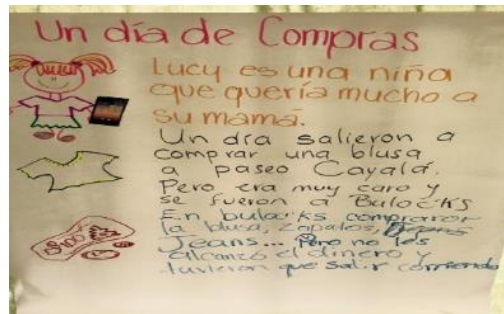 Un día de Compras
Lucy es una niña
que quería mucho a
su mamá.
Un día salieron a
comprar una blusa
a paseo Cayalá.
Pero era muy caro y
se fueron a Bulocks
En bulocks compraron
la blusa, zapatos,
Jeans... Pero no les
alcanzó el dinero y
tuvieron que salir corriendo
$100